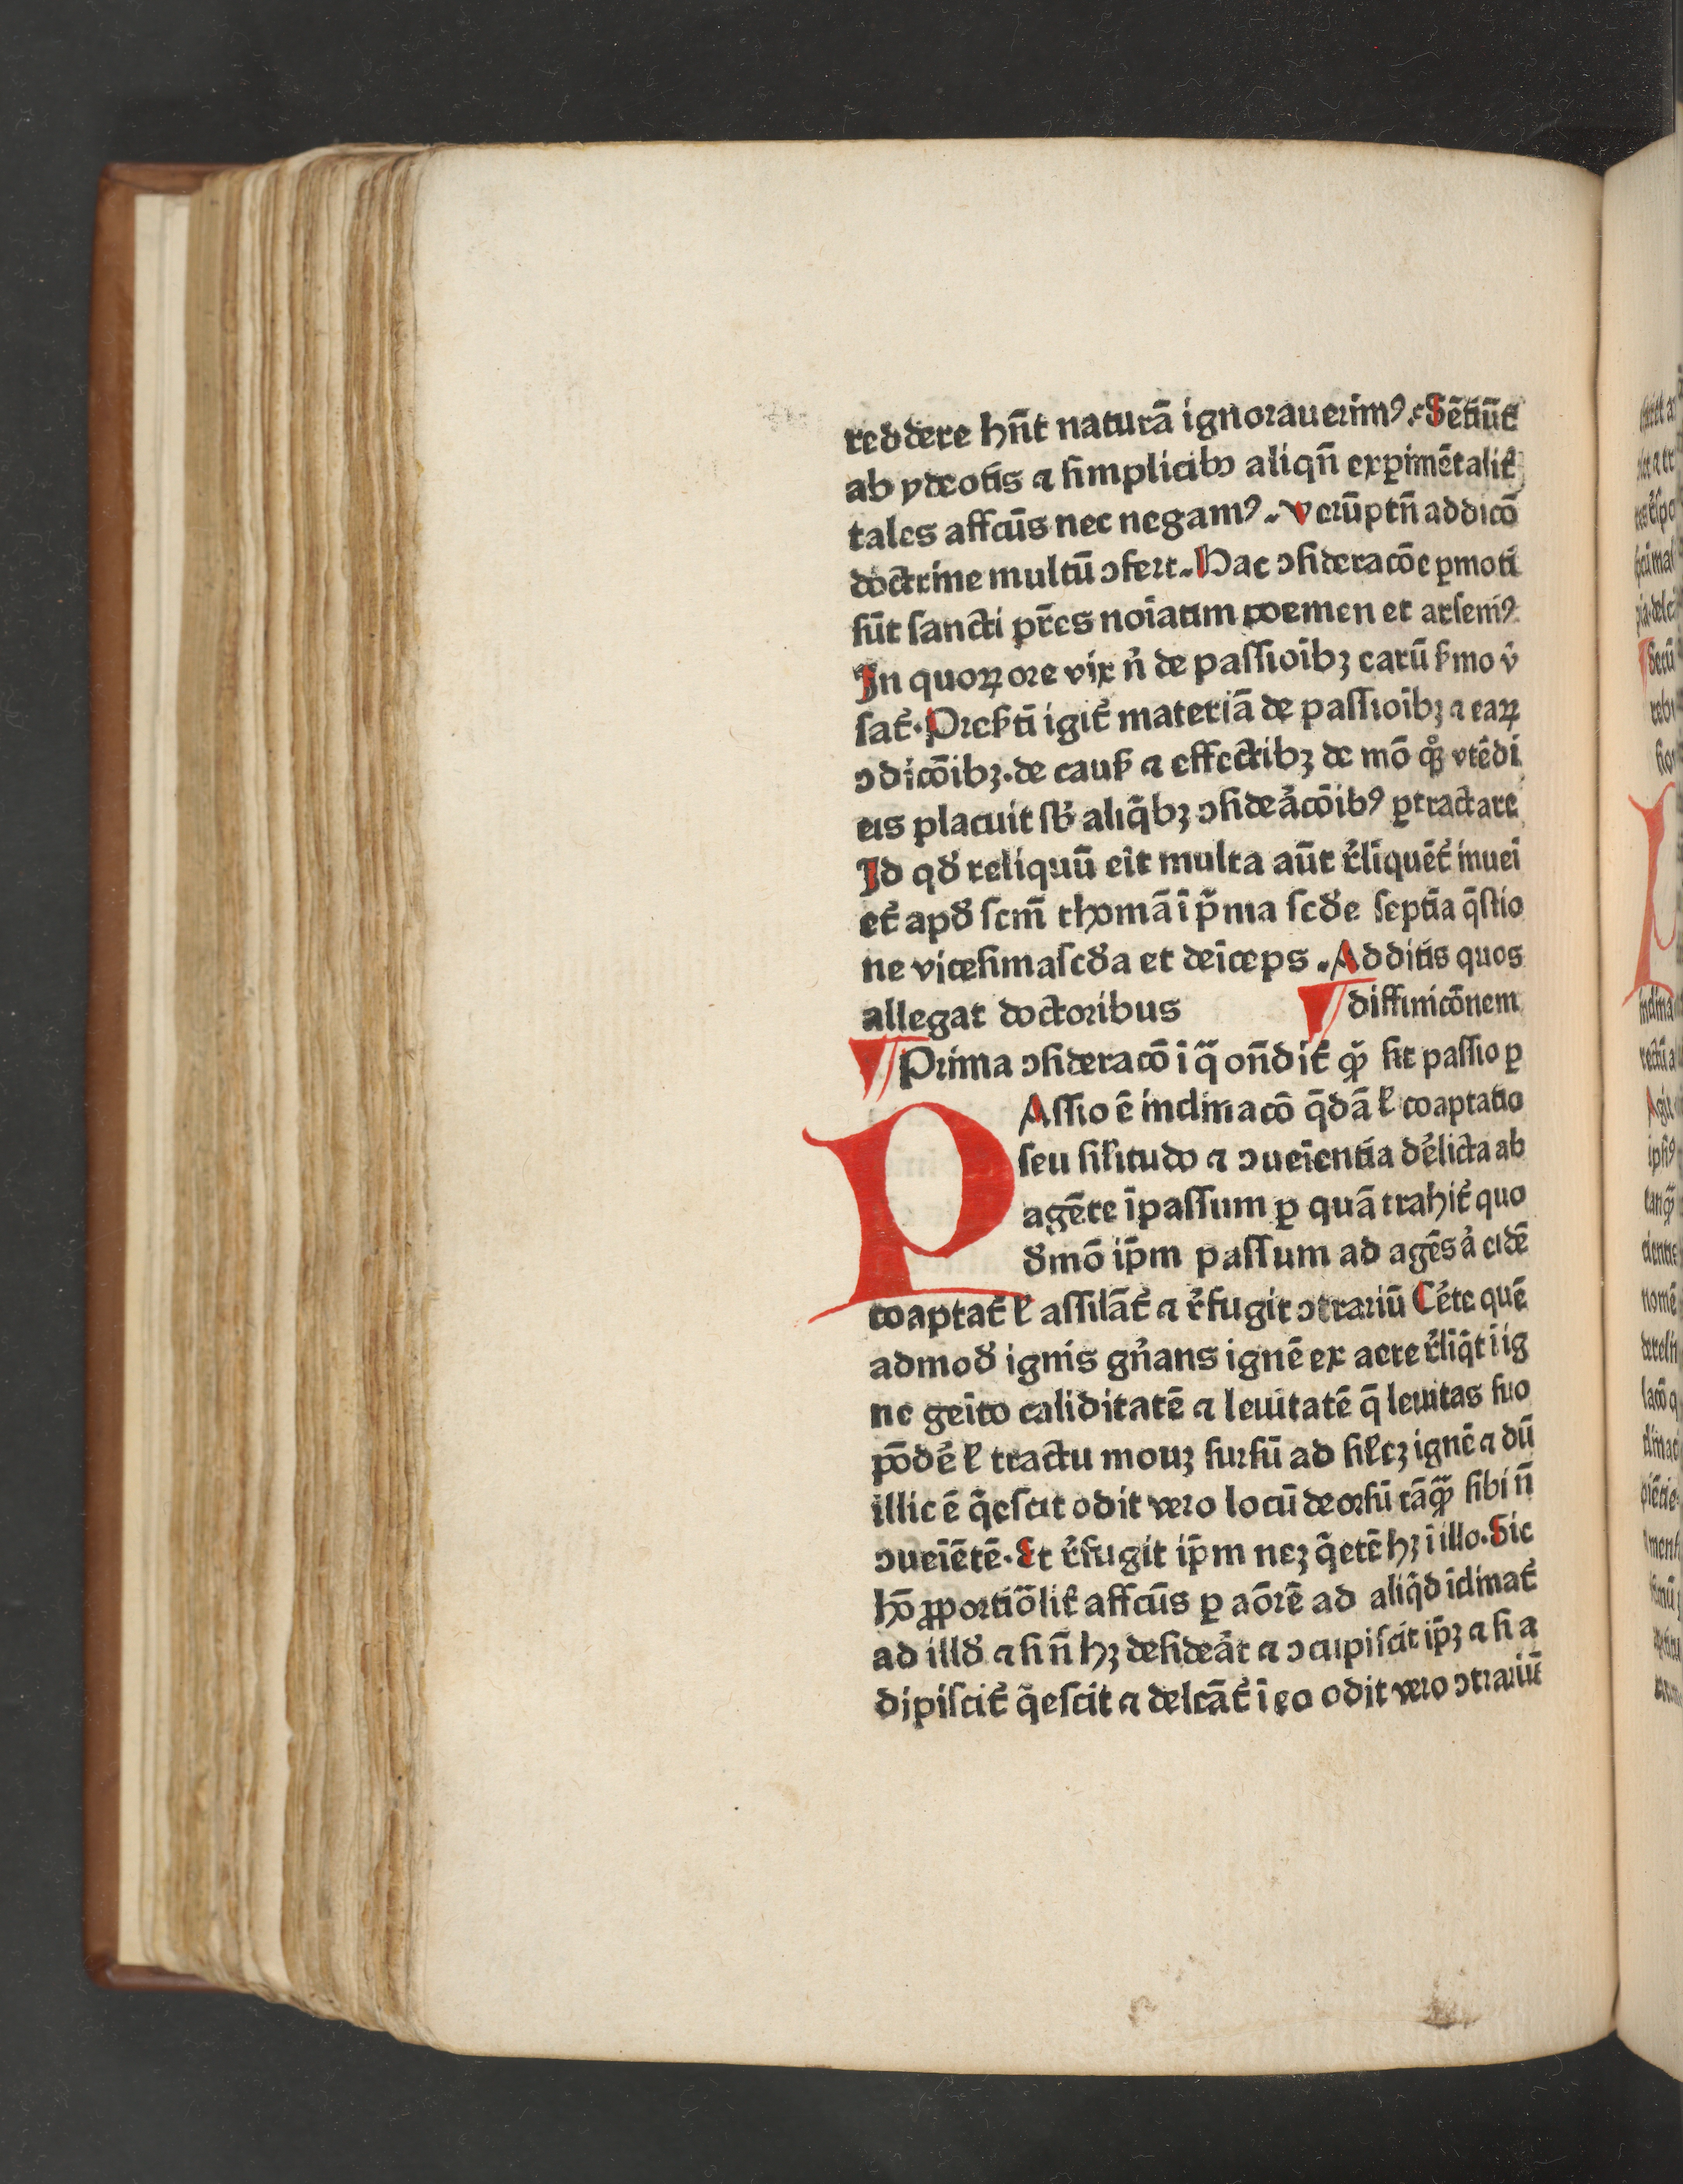 reddere hn̄t naturā ignorauerimꝰ. Sētiūt᷑
ab ydeotis ⁊ simplicibꝫ aliqn̄ expimētalit᷑
tales affcūs nec negamꝰ. verūptn̄ addicō
doctrine multū ↄfert. Hac ↄsideracōe ꝑmoti
sūt sancti pr̄es noīatim poemen et arsenīꝰ
In quoꝝ ore vix n̄ de passioībꝫ earū s̄mo v̓
sat᷑. Pres̄ti igit᷑ materiā de passioībꝫ ⁊ eaꝝ
ↄdicōibꝫ. de caus̄ ⁊ effectibꝫ de mō qͦꝫ vtēdi
eis placuit sb̓ aliq̄bꝫ ↄsideac̄ōibꝰ ꝑtractare
Id qd̓ reliquū eīt multa aūt r̓līquēt᷑ inuei
et᷑ apd̓ scm̄ thomā ī p̄ma scd̓e septīa q̄stio
ne vicesimascd̓a et deīceps. Additis quos
allegat doctoribus diffinicōnem
Prima ↄsideracō ī q̄ on̄dit᷑ qꝫ sit passio ꝑ
PAssio ē inclinacō q̄dā l̄ coaptatio
seu sil̄itudo ⁊ ↄueīentia d̓elicta ab
agēte īpassum ꝑ quā trahit᷑ quo
d̓mō ip̄m passum ad agēs a̓ eidē
coaptat᷑ l̄ assilāt᷑ ⁊ r̓fugit ↄtrariū Cēte quē
admod̓ ignis gn̓ans ignē ex aere r̓līq̄t ī ig
ne geīto caliditatē ⁊ leuitatē q̄ leuitas suo
pōdē l̄ tractu mouꝫ sursū ad sil̄eꝫ ignē ⁊ dū
illic ē q̄escit odit vero locū deorsū tāqꝫ sibi n̄
ↄueīētē. Et r̓fugit ip̄m neꝫ q̄etē hꝫ ī illo. Sic
hō ꝓportiōlit᷑ affcūs ꝑ aōrē ad aliq̄d īclinat᷑
ad illd̓ ⁊ si n̄ hꝫ desideāt ⁊ ↄcupiscit ip̄ꝫ ⁊ si a
dipiscit᷑ q̄escit ⁊ delcāt᷑ ī eo odit vero ↄtrariū